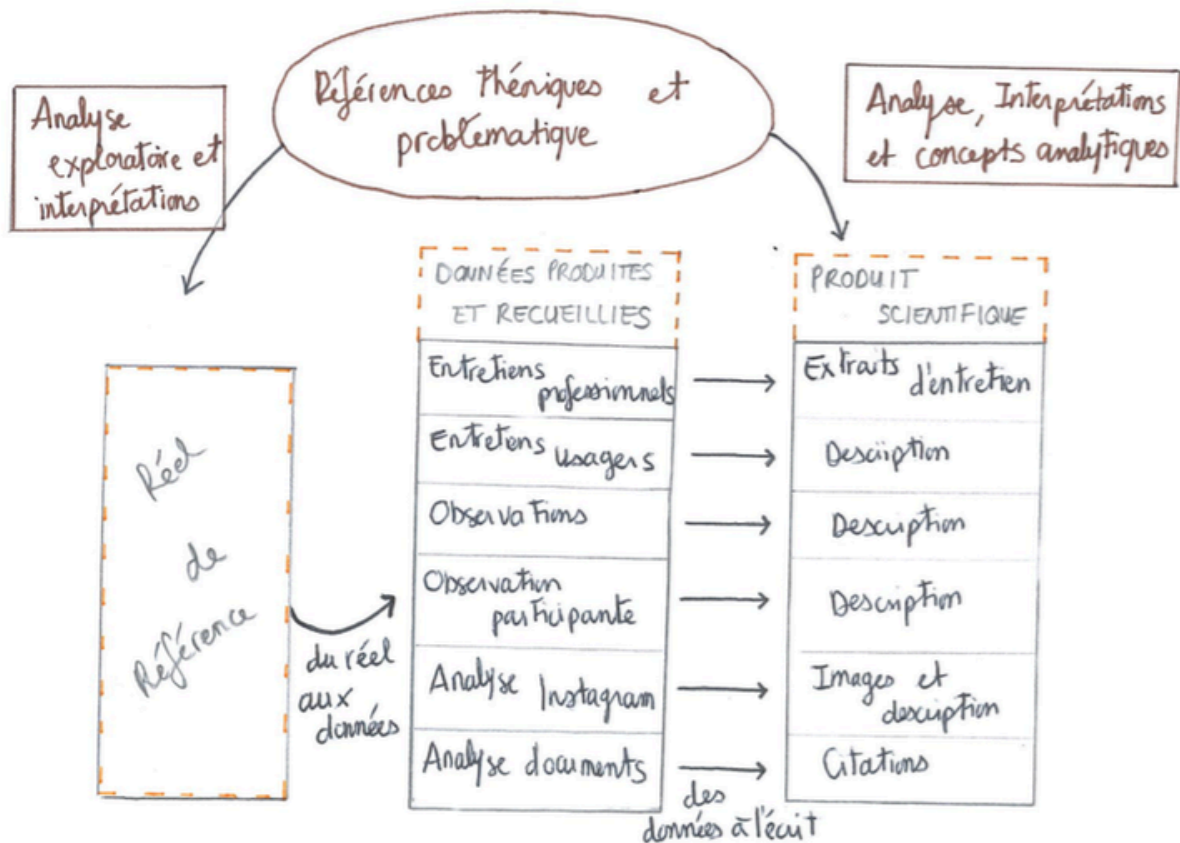 Références théniques et
problématique
Analyse
exploratoire et
interprétations
Analyse, Interprétations
et concepts analytiques
Réel
de
Référence
du réel
aux
données
DONNÉES PRODUITES
ET RECUEILLIES
Entretiens
professionnels
Entretiens
usagers
Observations
Observation
participante
Analyse
Instagram
Analyse documents
des
données à l'écrit
PRODUIT
SCIENTIFIQUE
Extraits
d'entretien
Description
Description
Description
Images et
description
Citations